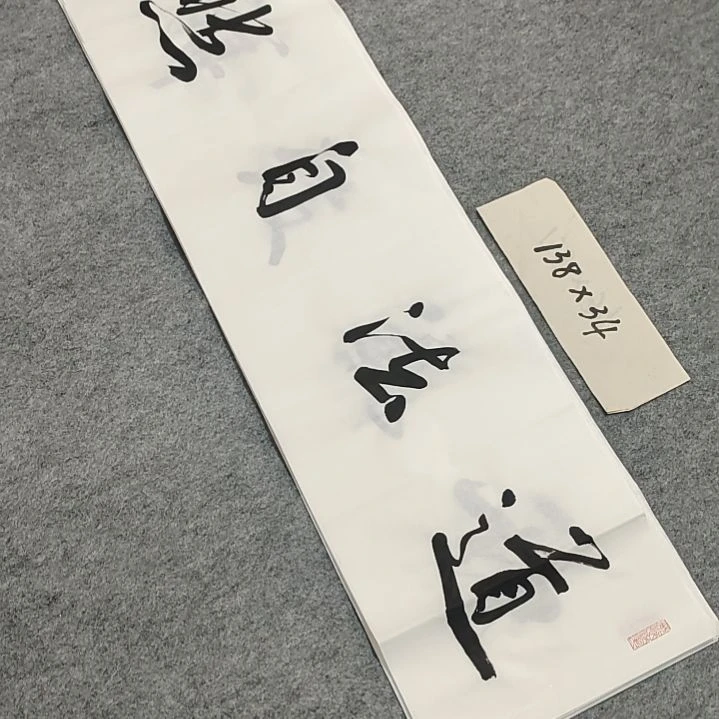 道法自然
138×34